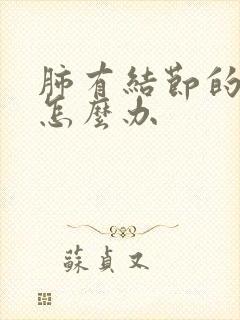 肺有結節的
怎麼办
蘇貞又